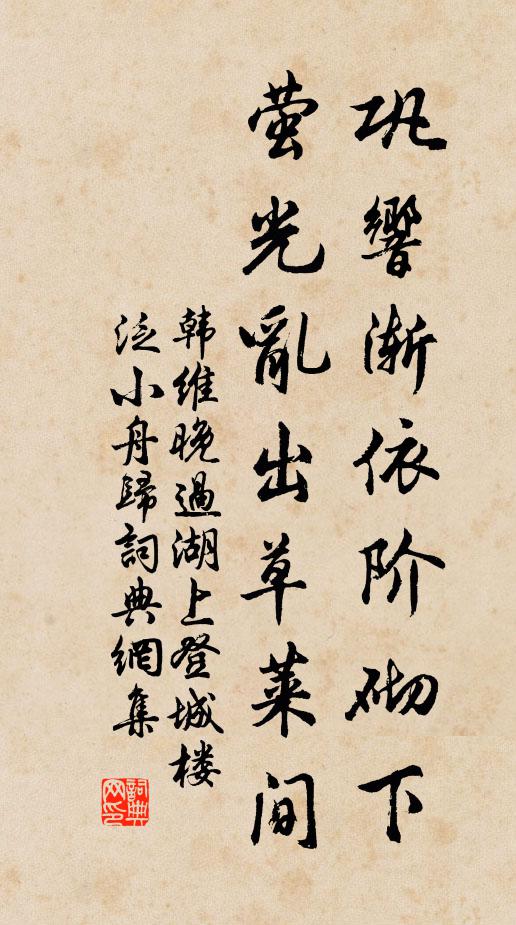 巩響渐依阶砌下
萤光亂出草莱间
韩维晚過湖上登城楼
泛小舟歸詞典網集
詞典
网印